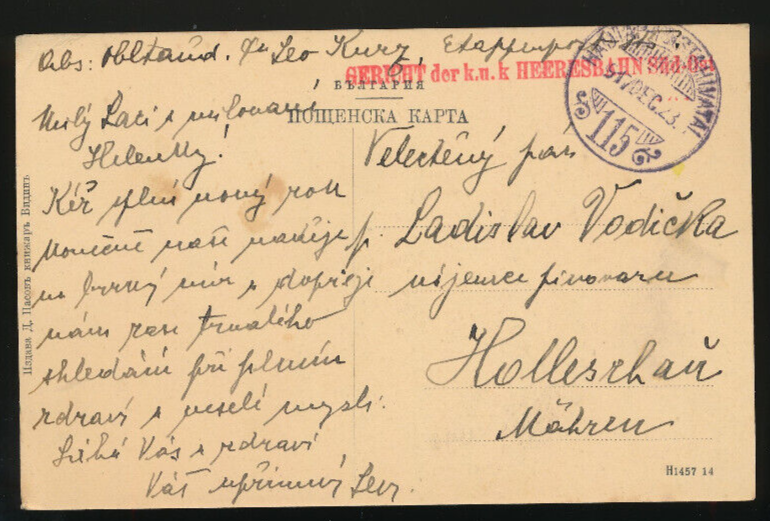 Abs: Obltaud. Dr Leo Kurz, Etappenpo
GERICHT der k.u.k HEERESBAHN Süd-Ost
БЪЛГАРИЯ
ПОЩЕНСКА КАРТА
DEC. 23
115
Milý Laci a milovaná
Helenky!
Kéž splní nový rok
konečně naši naději
na brzký mír a dopřeje
nám zase trvalého
shledání při plném
zdraví a veselé mysli.
Líbá Vás a zdraví
Váš upřímný Leo.
Velectěný pán
p. Ladislav Vodička
nájemce pivovaru
Holleschau
Mähren
Издава Д. Цасовъ книжаръ Видинъ
H1457 14